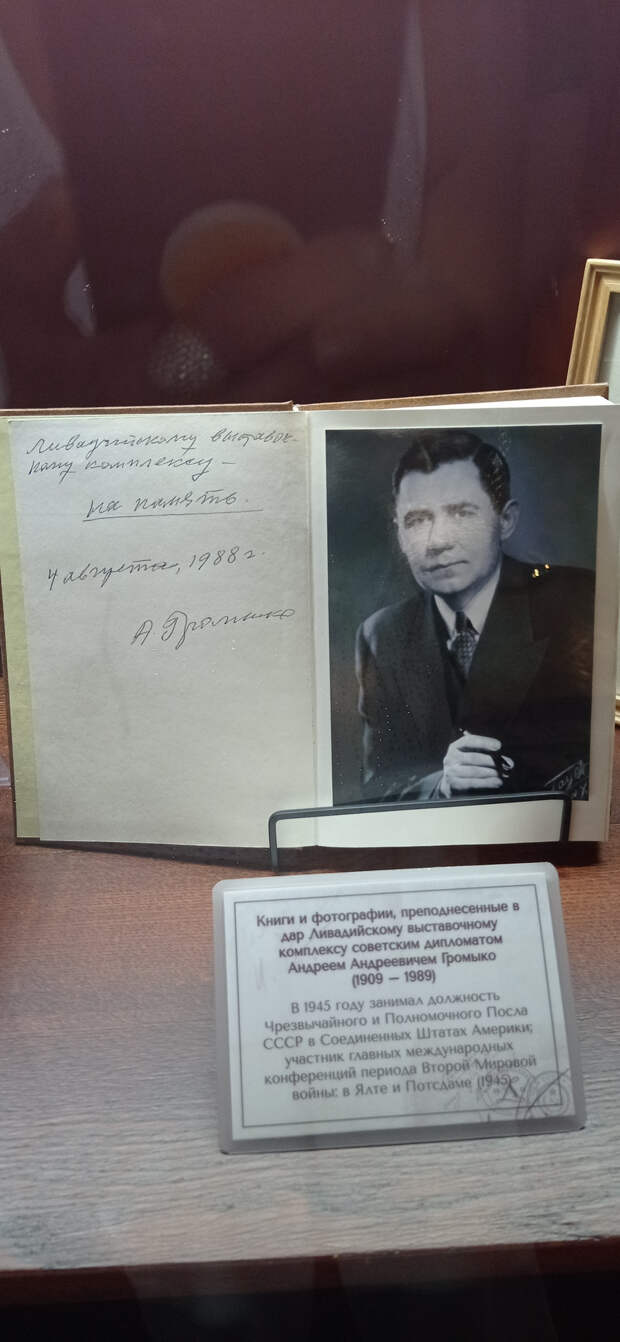 Ливадийскому выставоч-
ному комплексу –
на память.
4 августа, 1988 г.
А. Громыко
Книги и фотографии, преподнесенные в
дар Ливадийскому выставочному
комплексу советским дипломатом
Андреем Андреевичем Громыко
(1909 — 1989)
В 1945 году занимал должность
Чрезвычайного и Полномочного Посла
СССР в Соединенных Штатах Америки;
участник главных международных
конференций периода Второй Мировой
войны: в Ялте и Потсдаме (1945)